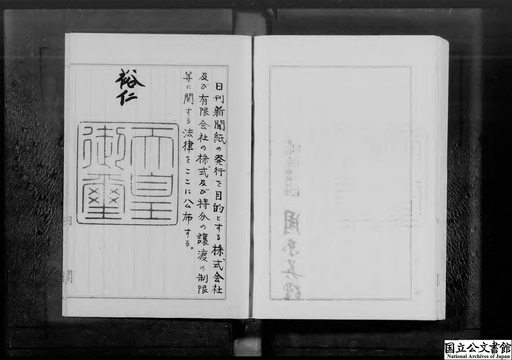 日刊新聞紙の発行を目的とする株式会社
及び有限会社の株式及び持分の譲渡の制限
等に関する法律をここに公布する。
裕仁
天皇
御璽
国立公文書館
National Archives of Japan